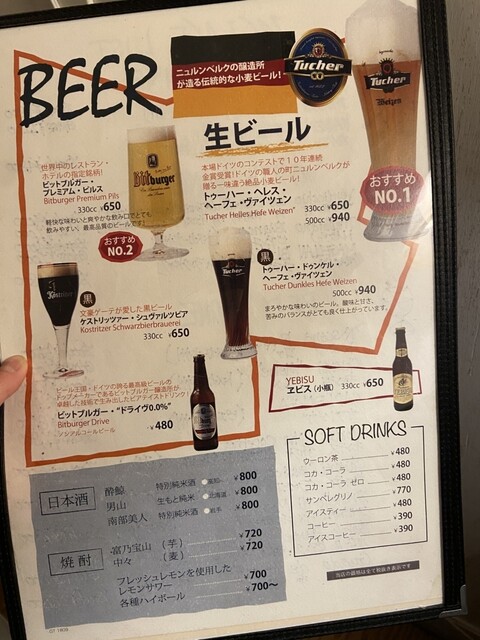 BEER
ニュルンベルクの醸造所
が造る伝統的な小麦ビール!
Tucher
Tucher
Weizen
生ビール
本場ドイツのコンテストで10年連続
金賞受賞!ドイツの職人の町ニュルンベルクが
贈る一味違う絶品小麦ビール!
トゥーハー・ヘレス・
ヘーフェ・ヴァイツェン
Tucher Helles Hefe Weizen
330cc ¥650
500cc ¥940
おすすめ
NO.1
世界中のレストラン・
ホテルの指定銘柄!
ビットブルガー・
プレミアム・ピルス
Bitburger Premium Pils
330cc ¥650
軽快な味わいと爽やかな飲み口でとても
飲みやすい、最高品質のビールです!
Bitburger
おすすめ
NO.2
黒
トゥーハー・ドゥンケル・
ヘーフェ・ヴァイツェン
Tucher Dunkles Hefe Weizen
500cc ¥940
まろやかな味わいのビール、酸味と甘さ、
苦みのバランスがとても良く仕上がっています。
Tucher
黒
文豪ゲーテが愛した黒ビール
ケストリッツァー・シュヴァルツビア
Kostritzer Schwarzbierbrauerei
330cc ¥650
ビール王国・ドイツの誇る最高級ビールの
トップメーカーであるビットブルガー醸造所が
卓越した技術で生み出したビアテイストドリンク!
ビットブルガー・"ドライヴ0.0%"
Bitburger Drive
ノンアルコールビール
¥480
YEBISU
ヱビス(小瓶) 330cc ¥650
SOFT DRINKS
ウーロン茶 ¥480
コカ・コーラ ¥480
コカ・コーラ ゼロ ¥480
サンペレグリノ ¥770
アイスティー ¥480
コーヒー ¥390
アイスコーヒー ¥390
日本酒
酔鯨 特別純米酒 ●高知 ¥800
男山 生もと純米 ●北海道 ¥800
南部美人 特別純米酒 ●岩手 ¥800
焼酎
富乃宝山 (芋) ¥720
中々 (麦) ¥720
フレッシュレモンを使用した
レモンサワー ¥700
各種ハイボール ¥700〜